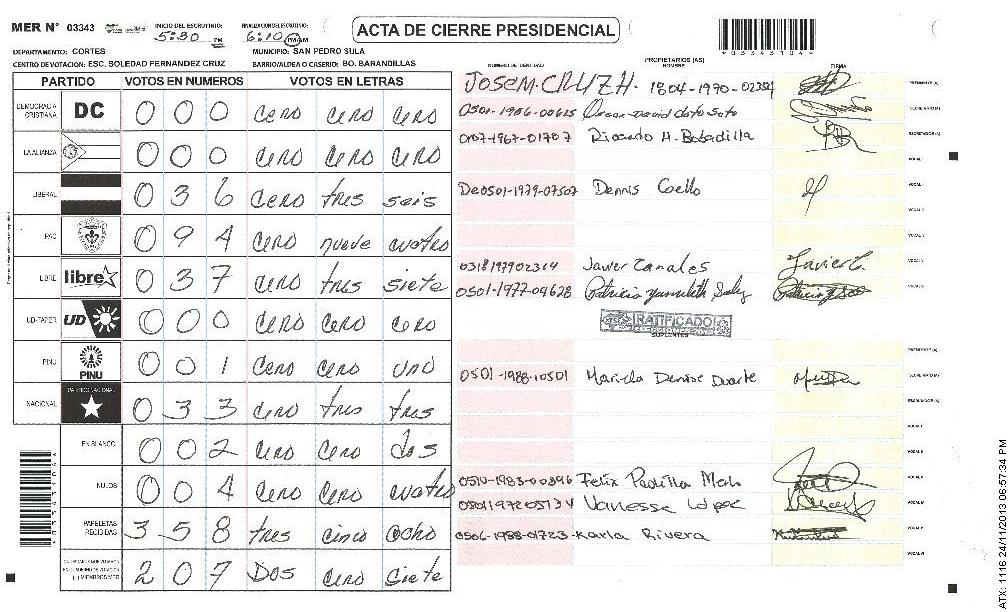 MER N° 03343 INICIO DEL ESCRUTINIO: 5:30 PM FINALIZACION ESCRUTINIO: 6:10 PM ACTA DE CIERRE PRESIDENCIAL
DEPARTAMENTO: CORTES MUNICIPIO: SAN PEDRO SULA
CENTRO DE VOTACION: ESC. SOLEDAD FERNANDEZ CRUZ BARRIO/ALDEA O CASERIO: BO. BARANDILLAS
NUMERO DE IDENTIDAD PROPIETARIOS (AS) NOMBRE FIRMA
PARTIDO VOTOS EN NUMEROS VOTOS EN LETRAS
JOSE M. CRUZ H. 1804-1990-02354 PRESIDENTE (A)
DEMOCRACIA CRISTIANA DC 0 0 0 cero cero cero
0501-1986-00615 Oscar David Soto SECRETARIO (A)
0107-1967-01707 Ricardo H. Bobadilla ESCRUTADOR (A)
LA ALIANZA 0 0 0 cero cero cero
VOCAL I
LIBERAL 0 3 6 cero tres seis
DE0501-1979-07507 Dennis Coello
PAC 0 9 4 cero nueve cuatro
LIBRE libre 0 3 7 cero tres siete
0318197902314 Javier Canales Javier C.
0501-1977-09628 Patricia Yamileth
UD-FAPER UD 0 0 0 cero cero cero
RATIFICADO
SUPLENTES
PINU PINU 0 0 1 cero cero uno
PRESIDENTE (A)
0501-1988-10501 Mariela Denise Duarte SECRETARIO (A)
NACIONAL PARTIDO NACIONAL 0 3 3 cero tres tres
ESCRUTADOR (A)
EN BLANCO 0 0 2 cero cero dos
NULOS 0 0 4 cero cero cuatro
0510-1983-00396 Felix Padilla
0501197205134 Vanessa Lopez
PAPELETAS RECIBIDAS 3 5 8 tres cinco ocho
0506-1988-01723 Karla Rivera
(+) MIEMBROS MER 2 0 7 Dos cero siete
ATX: 1116 24/11/2013 06:57:34 PM